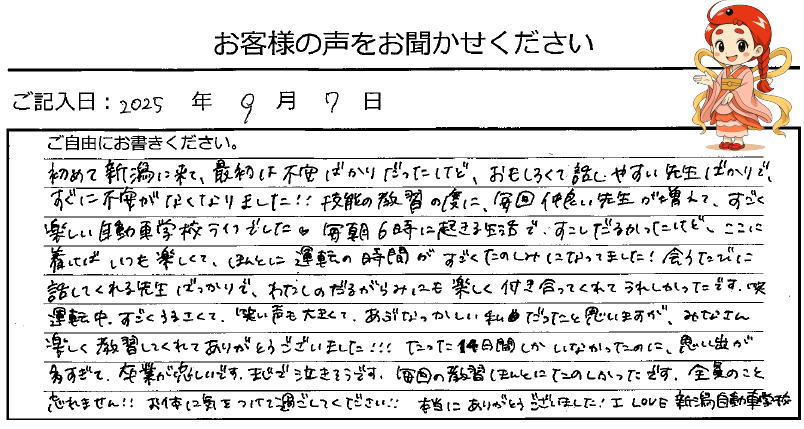 お客様の声をお聞かせください
ご記入日：2025 年 9 月 7 日
ご自由にお書きください。
初めて新潟に来て、最初は不安ばかりだったけど、おもしろくて話しやすい先生ばかりで、
すぐに不安がなくなりました!! 技能の教習の度に、毎回仲良い先生が増えて、すごく
楽しい自動車学校ライフでした。毎朝6時に起きる生活で、すこしだるかったけど、ここに
着けばいつも楽しくて、ほんとに運転の時間がすごくたのしみになってました! 会うたびに
話してくれる先生ばっかりで、わたしのだるがらみにも楽しく付き合ってくれてうれしかったです。笑
運転中、すごくうるさくて、笑い声も大きくて、あぶなっかしい私だったと思いますが、みなさん
楽しく教習してくれてありがとうございました!!! たった14日間しかいなかったのに、思い出が
多すぎて、卒業が悲しいです。まじで泣きそうです。毎回の教習ほんとにたのしかったです。全員のこと
忘れません!! お体に気をつけて過ごしてください!! 本当にありがとうございました! I LOVE 新潟自動車学校